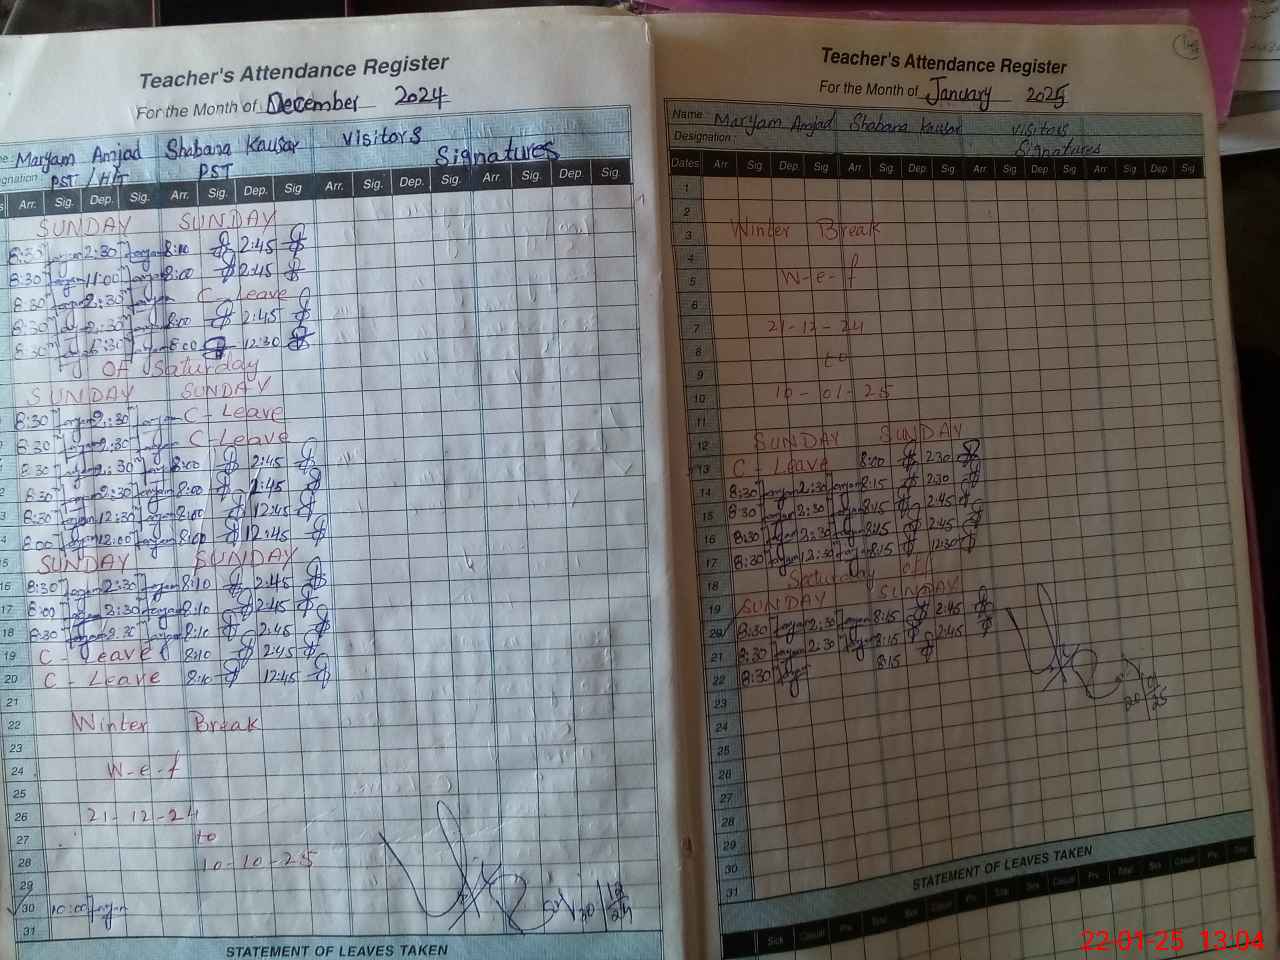 Teacher's Attendance Register
For the Month of December 2024
Maryam Amjad Shabana Kausar Visitors Signatures
PST / HT PST
Arr. Sig. Dep. Sig. Arr. Sig. Dep. Sig Arr. Sig. Dep. Sig. Arr. Sig. Dep. Sig.
SUNDAY SUNDAY
8:30 2:30 8:10 2:45
8:30 11:00 8:00 2:45
8:30 2:30 C-Leave
8:30 2:30 8:00 2:45
8:30 8:00 12:30
Of Saturday
SUNDAY SUNDAY
8:30 2:30 C-Leave
8:30 2:30 C-Leave
8:30 2:30 8:00 2:45
8:30 2:30 8:00 2:45
8:30 12:30 8:00 12:45
8:00 12:00 8:00 12:45
SUNDAY SUNDAY
16 8:30 2:30 8:10 2:45
17 8:00 2:30 8:10 2:45
18 8:30 2:30 8:10 2:45
19 C-Leave 8:10 2:45
20 C-Leave 8:10 12:45
21
22 Winter Break
23
24 W-e-f
25
26 21-12-24
27 to
28 10-10-25
29
30 10:00
31
STATEMENT OF LEAVES TAKEN
Teacher's Attendance Register
For the Month of January 2025
Name : Maryam Amjad Shabana Kausar visitors
Designation : Signatures
Dates Arr. Sig. Dep. Sig. Arr. Sig. Dep Sig Arr Sig. Dep Sig Arr Sig Dep Sig
1
2
3 Winter Break
4
5 W-e-f
6
7 21-12-24
8 to
9
10 10-01-25
11
12 SUNDAY SUNDAY
13 C-Leave 8:00 2:30
14 8:30 2:30 8:15 2:30
15 8:30 2:30 8:15 2:45
16 8:30 2:30 8:15 2:45
17 8:30 12:30 8:15 12:30
18 Saturday of
19 SUNDAY SUNDAY
20 8:30 2:30 8:15 2:45
21 8:30 2:30 8:15 2:45
22 8:30 8:15
23
24
25
26
27
28
29
30
31
STATEMENT OF LEAVES TAKEN
22-01-25 13:04